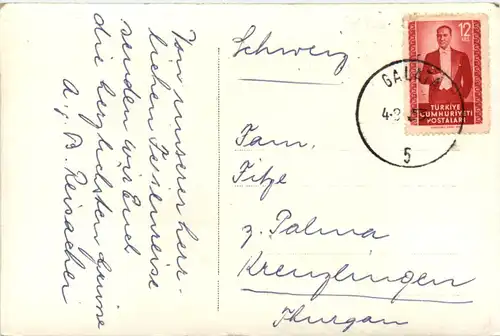 Von unserer herr-
lichen Ferienreise
senden wir Euch
die herzlichsten Grüsse
A. + B. Reisacher
Schweiz
Fam.
z. Palma
Kreuzlingen
Thurgau
12
TÜRKİYE
CUMHURİYETİ
POSTALARI
GALATA
5